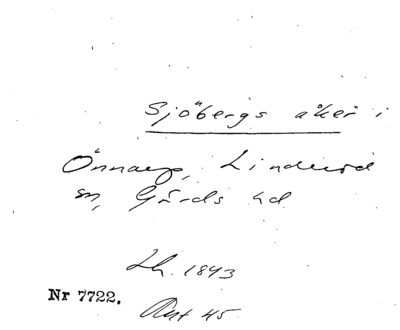 Sjöbergs åker i
Önnarp, Linderöd
sn, Gärds hd
Lh. 1843
Nr 7722.
Ant 45